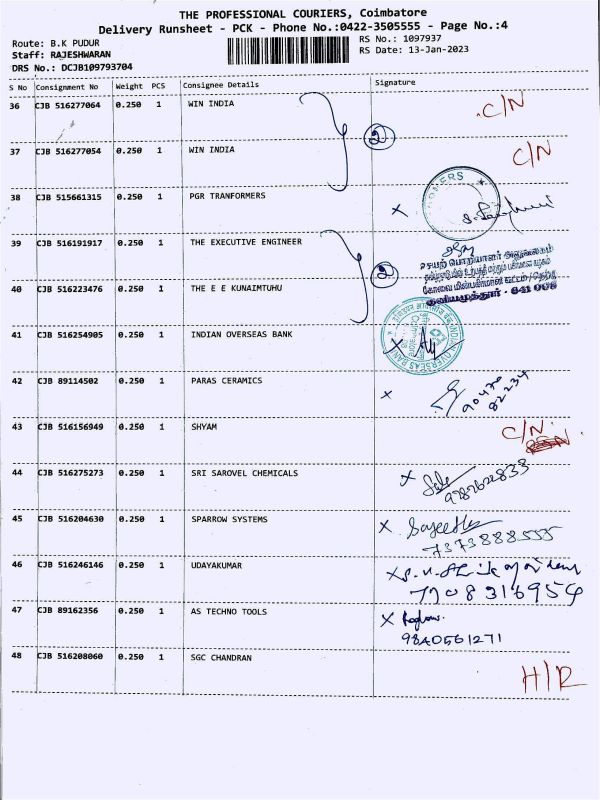 THE PROFESSIONAL COURIERS, Coimbatore
Delivery Runsheet - PCK - Phone No.:0422-3505555 - Page No.:4
Route: B.K PUDUR
RS No.: 1097937
Staff: RAJESHWARAN
RS Date: 13-Jan-2023
DRS No.: DCJB109793704
S No Consignment No Weight PCS Consignee Details Signature
36 CJB 516277064 0.250 1 WIN INDIA C/N
2
37 CJB 516277054 0.250 1 WIN INDIA C/N
38 CJB 515661315 3.250 1 PGR TRANFORMERS X
39 CJB 516191917 0.250 1 THE EXECUTIVE ENGINEER
2
40 CJB 516223476 0.250 1 THE E E KUNAIMTUHU
குனியமுத்தூர் - 641 008
41 CJB 516254905 0.250 1 INDIAN OVERSEAS BANK X
INDIAN OVERSEAS BANK
42 CJB 89114502 0.250 1 PARAS CERAMICS X
82234
43 CJB 516156949 0.250 1 SHYAM C/N
44 CJB 516275273 0.250 1 SRI SAROVEL CHEMICALS X
45 CJB 516204630 0.250 1 SPARROW SYSTEMS X
7373888555
46 CJB 516246146 0.250 1 UDAYAKUMAR X
7708316954
47 CJB 89162356 0.250 1 AS TECHNO TOOLS X
9840561271
48 CJB 516208060 0.250 1 SGC CHANDRAN H/R